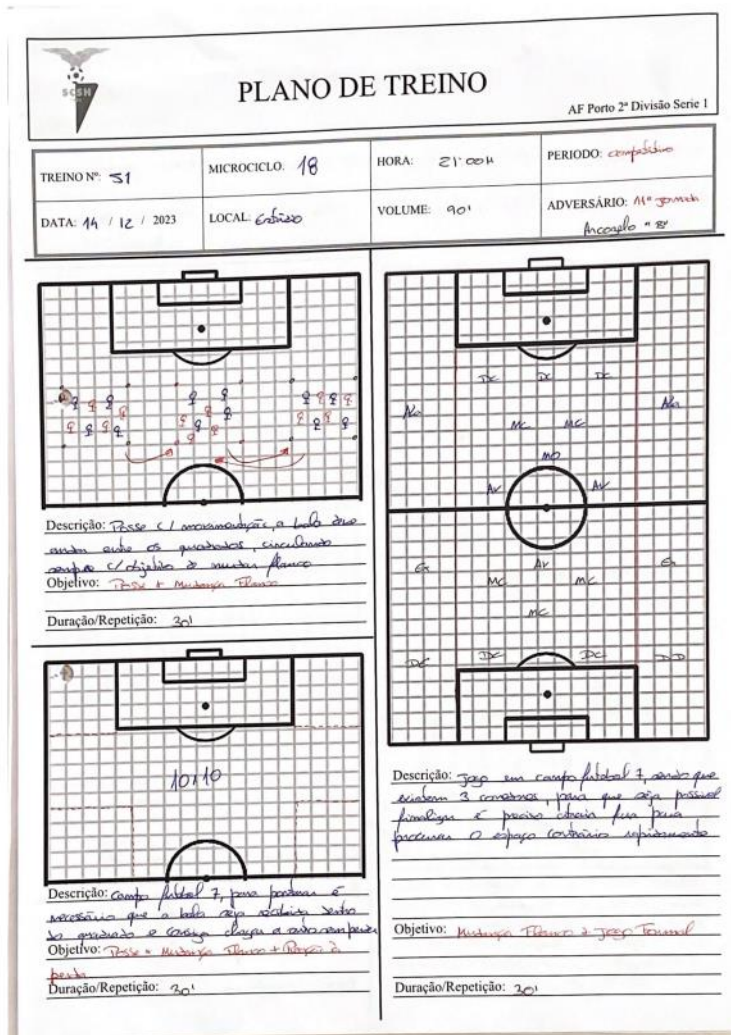 SCSH
PLANO DE TREINO
AF Porto 2ª Divisão Serie 1
TREINO Nº: 51
MICROCICLO: 18
HORA: 21:00H
PERIODO: competitivo
DATA: 14 / 12 / 2023
LOCAL:
VOLUME: 90'
ADVERSÁRIO: 11ª Jornada
"B"
Descrição: Posse c/ movimentação, a bola deve
andar entre os quadrados, circulando
sempre c/ objetivo de mudar flanco
Objetivo: Posse + Mudança Flanco
Duração/Repetição: 30'
10x10
Descrição: Campo futebol 7, para pontuar é
necessário que a bola seja recebida dentro
do quadrado e consiga chegar a outro sem perder
Objetivo: Posse + Mudança Flanco + Reação à
perda
Duração/Repetição: 30'
DC DC DC
Ala Ala
MC MC
MO
AV AV
AV
Ex Ex
MC MC
MC
DE DC DC DD
Descrição: Jogo em campo futebol 7, sendo que
existem 3 corredores, para que seja possível
finalizar é preciso atrair fora para
procurar o espaço contrário rapidamente
Objetivo: Mudança Flanco + Jogo Formal
Duração/Repetição: 30'